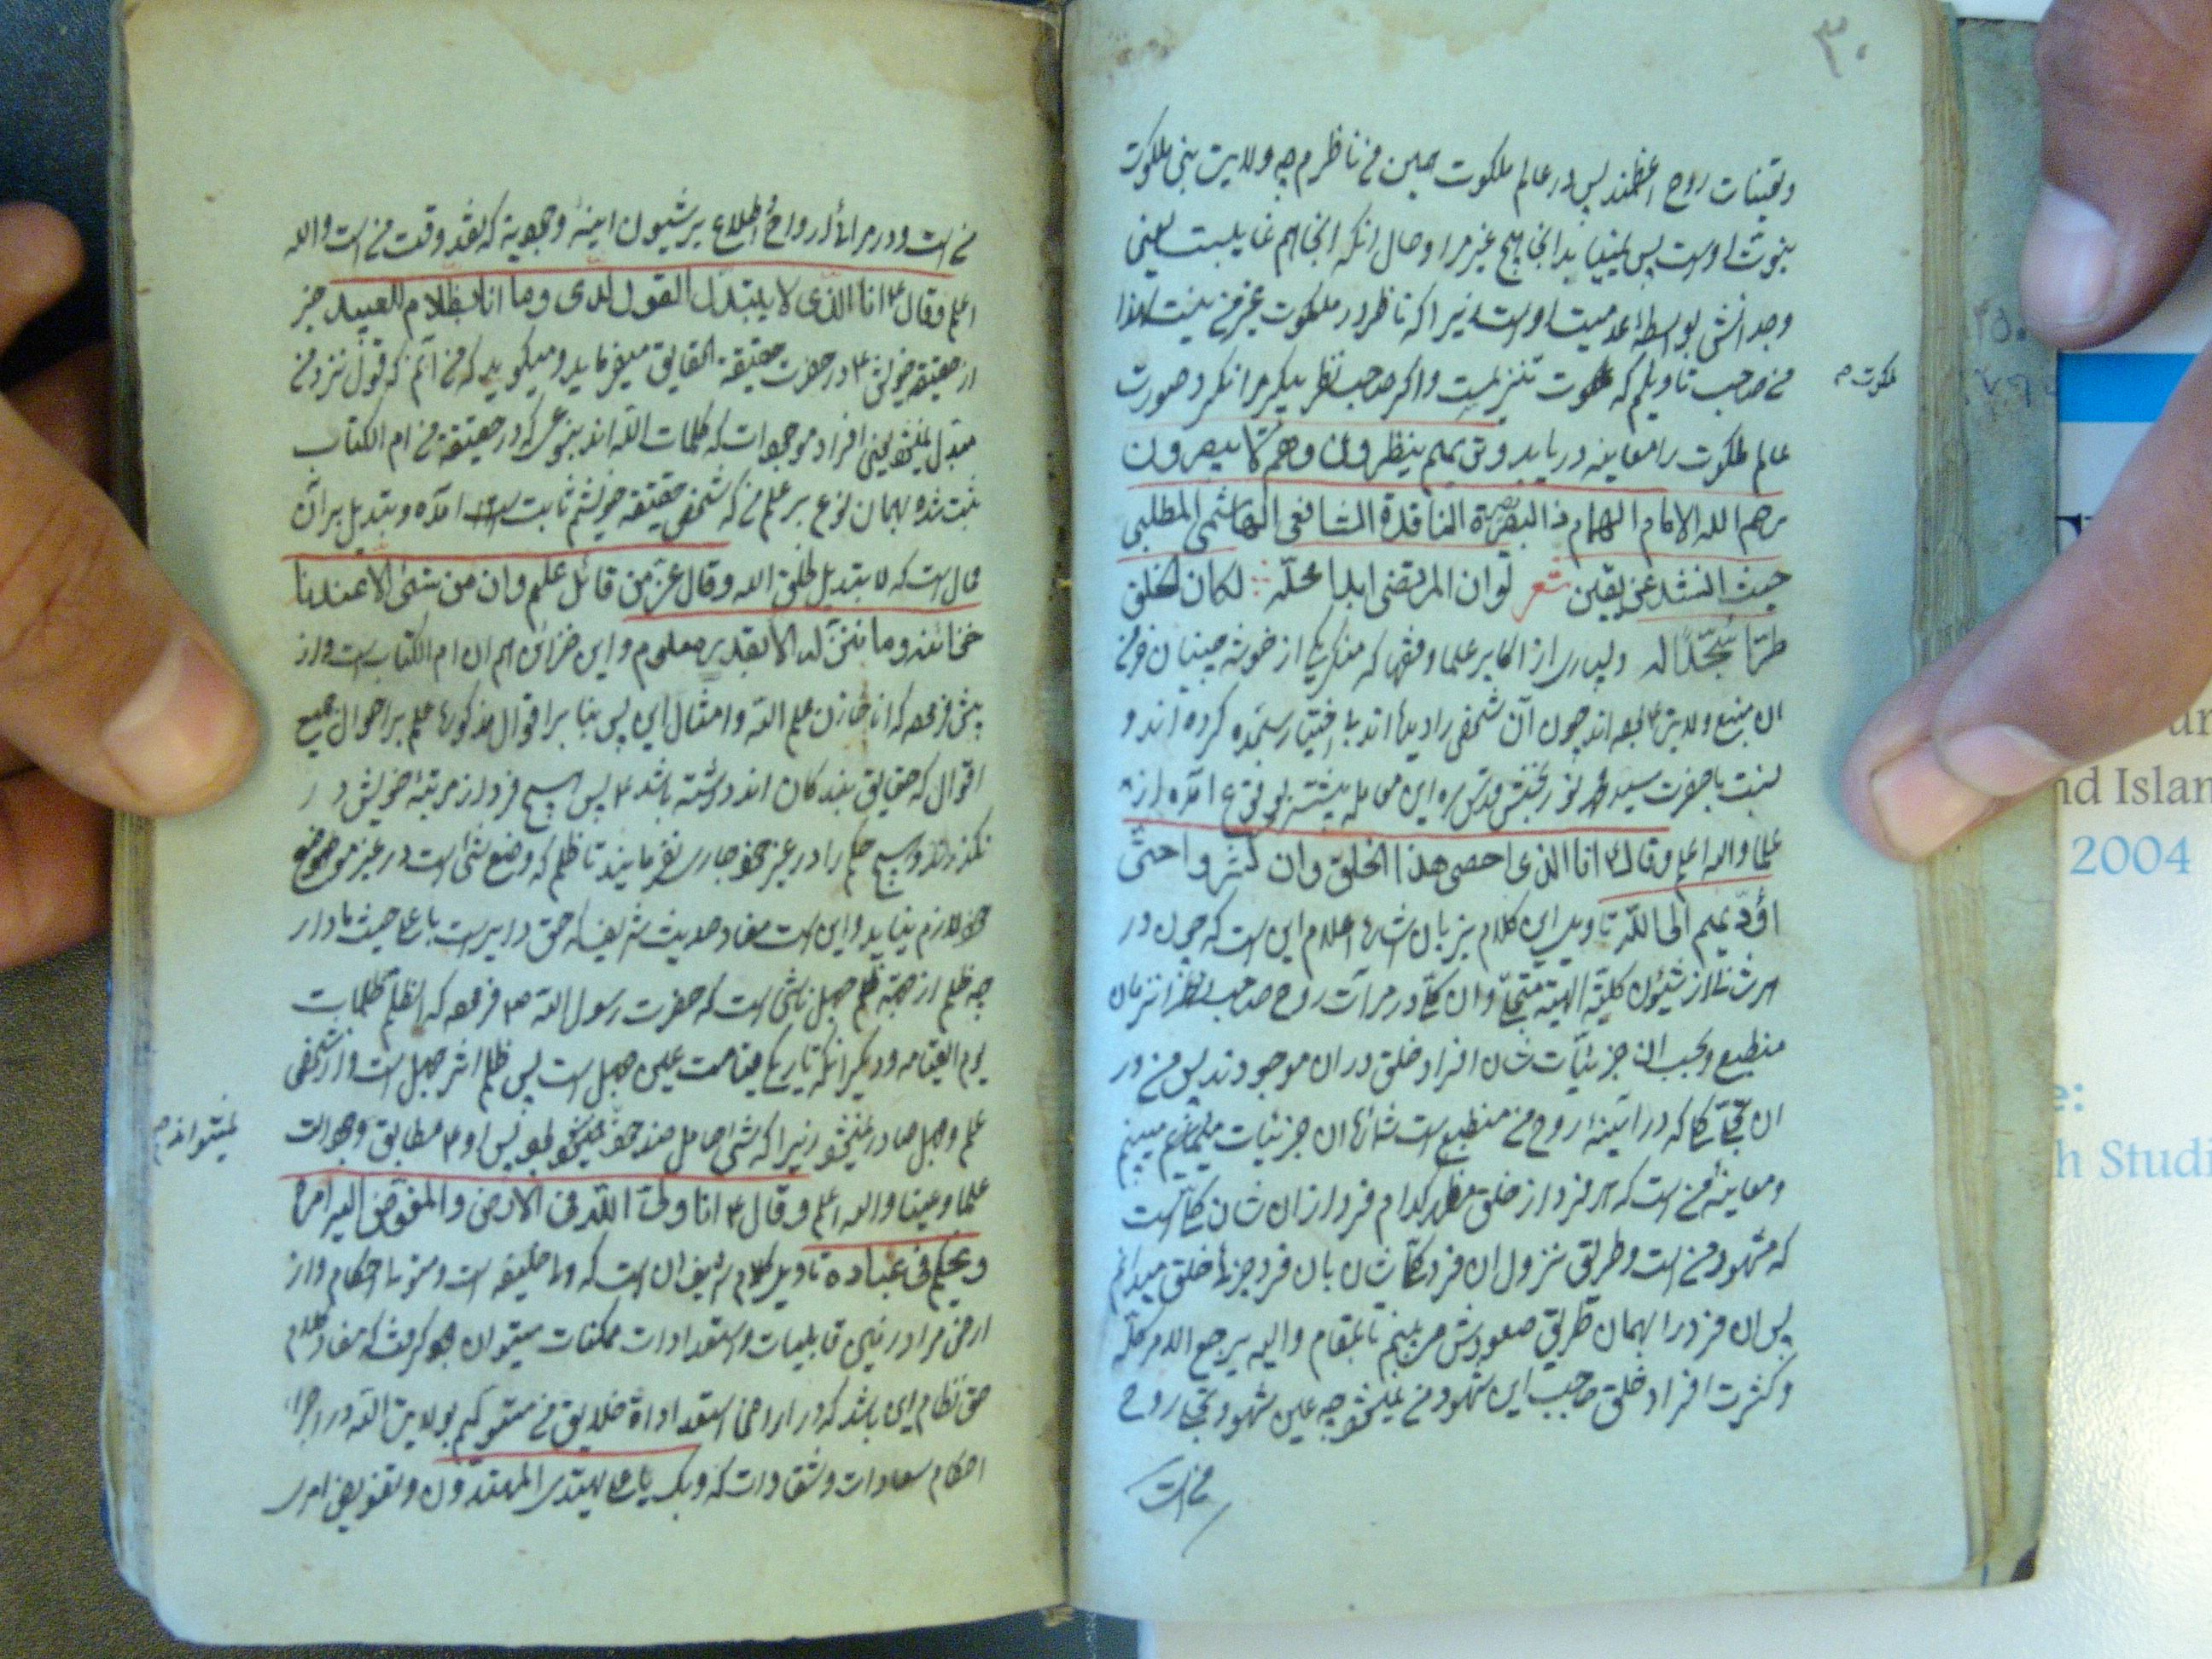 ۳۰
وتعینات روح اعظمند پس در عالم ملکوت همین من ناظرم چه ولایت بنی ملکوت
اوست پس نمیباید انجا هیچ غیر مرا و حال انکه انجا هم غایبست یعنی
وجدانش بواسطهٔ عدمیت اوست زیرا که ناظر در ملکوت غیر من نیست لهذا
من صاحب تاویلم که ملکوت تنزیلست و اگر صاحب نظر بیکر مرا نکرد صورت
ملکوت م
عالم ملکوت را معاینه دریابد وتریهم ینظرون وهم لا یبصرون
رحم الله الامام الهمام ذا البصیرة الناقدة الشافعی الهاشمی المطلبی
حیث انشد عن یقین شعر لو ان المرتضی ابدا محله لکان الخلق
طرا سجدا له و بسیاری از اکابر علما و فقها که منکر یکی از خوشه چینان خرمن
ان منبع ولایت بوده اند چون آن شخص را دیده اند بی اختیار سجده کرده اند و
نسبت با حضرت سید محمد نوربخش قدس سره این معامله بیشتر بوقوع امده از
علما والله اعلم وقال ع انا الذی احصی هذا الخلق وان کثروا حتی
اؤدیهم الی الله تاویل این کلام بزبان اشارهٔ اعلام این است که چون در
هر شانی از شئون کلیه الهیه متجلی و ان کلی در مرآت روح صاحب نظر انزمان
منطبع و بحسب ان جزئیات شان افراد خلق در ان موجودند پس من در
ان تجلی کلی که در آینهٔ روح من منطبع است شان ان جزئیات میبینم
و معاینهٔ من است که هر فرد از خلق مظهر کدام فرد از ان شان کلی است
که مشهود من است و طریق نزول ان فرد کلی شان بان فرد جزئی خلق میدانم
پس ان فرد را بهمان طریق صعودش می بینم تا بمقام والیه یرجع الامر کله
و کثرت افراد خلق حاجب این شهود من نمیشود چه عین شهود تجلی روح
من است
من است و در مرآت ارواح اطلاع بر شیون وجوبیه که نقد وقت من است والله
اعلم وقال ع انا الذی لا یبدل القول لدی وما انا بظلام للعبید خبر
از حقیقة خویش ع در حضرت حقیقة الحقایق میفرماید و میگوید که من آنم که قول نزد من
مبدل نمیشود یعنی افراد موجودات که کلمات الله اند بنوعی که در حقیقة من ام الکتاب
ثبت شده بهمان نوع بر علم من که شخص حقیقة خویشم ثابت است امده و تبدیل بر آن
محال است که لا تبدیل لخلق الله وقال عز من قائل علیم وان من شیء الا عندنا
خزائنه وما ننزله الا بقدر معلوم و این خزاین هم ان ام الکتاب است و از
پیش فرموده که انا خازن علم الله و امثال این پس بنا بر اقوال مذکوره علم بر احوال جمیع
اقوال که حقایق بندکان اند داشته باشد ع پس هیچ فرد از مرتبهٔ خویش در
نگذرانند و هیچ حکم را در غیر محل خود جاری نفرمایند تا ظلم که وضع شیء است در غیر موضع
خود لازم نیاید و این است مفاد حدیث شریف که حق دایر است با علی حیث ما دار
چه ظلم از جهة ظلم جهل ناشی است که حضرت رسول الله ص فرموده که الظلم ظلمات
یوم القیامه و دیگر انکه تاریکی قیامت عین جهل است پس ظلم اثر جهل است و از شخص
علم و جهل صادر نمیشود زیرا که شیء حامل ضد خود نمیشود پس او ع مطابق وجودات
نمیتواند م
علما و عینا والله اعلم وقال ع انا ولی الله فی الارض والمفوض الیه امره
ویحکم فی عباده تاویل کلام شریف ان است که ولی خلیفه است و منوط احکام و از
ارض مراد زمین قابلیات و استعدادات ممکنات میتوان که مفاد کلام
حق نظام این باشد که در اراضی استعدادات خلایق من متولیم بولایت الله در اجراء
احکام سعادات و شقاوات که وبک یا علی یهتدی المهتدون و تفویض امر